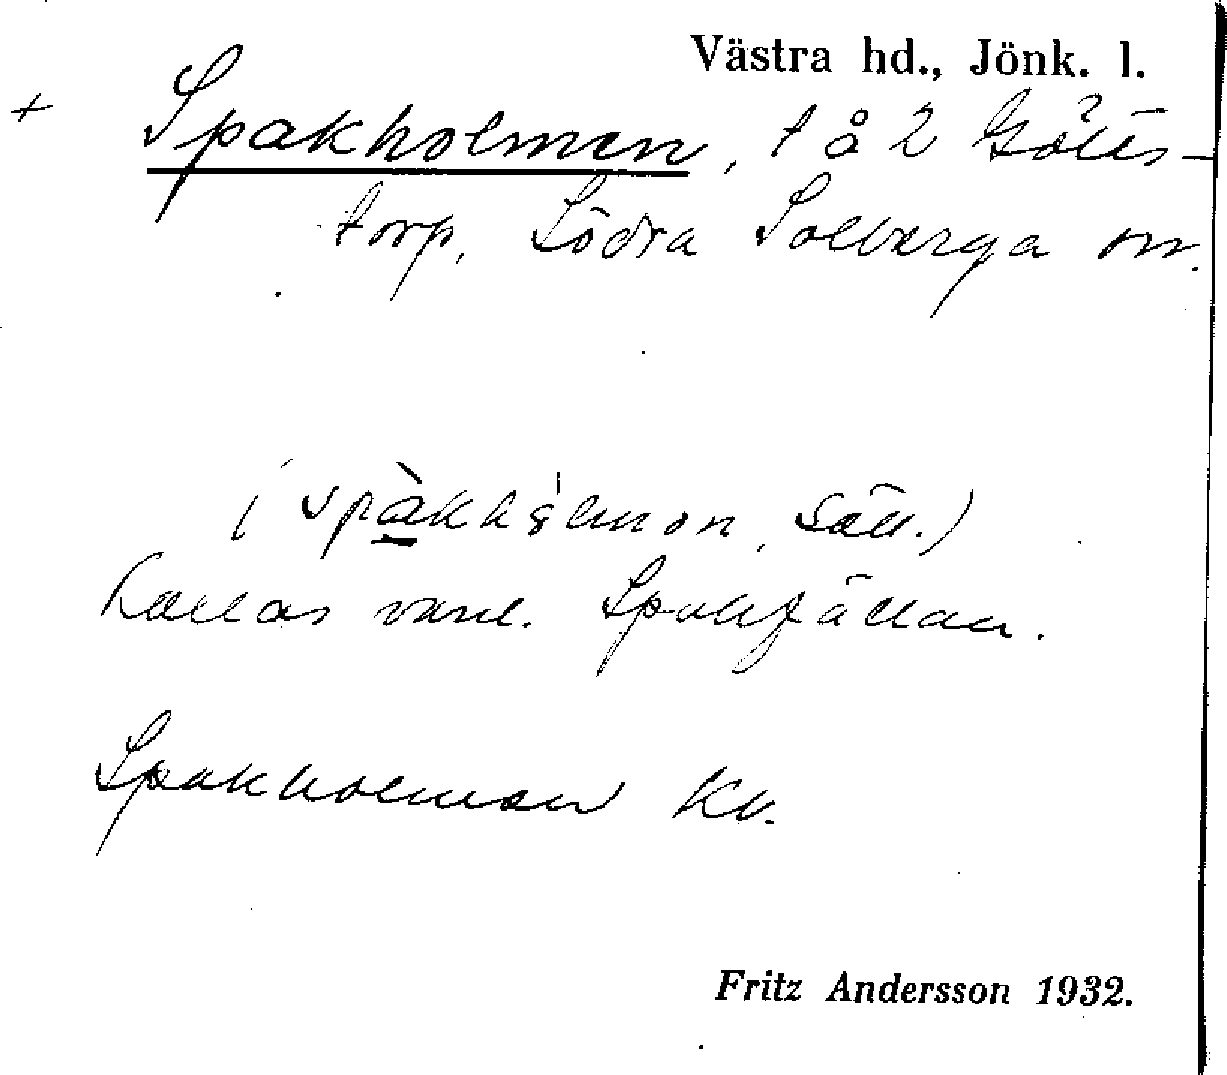 Västra hd., Jönk. l.
+ Spakholmen, t å 2 Götes-
torp, Södra Solberga sn.
( spàkhólmon, säll.)
Kallas vanl. Spakfällan.
Spakholmen Kv.
Fritz Andersson 1932.